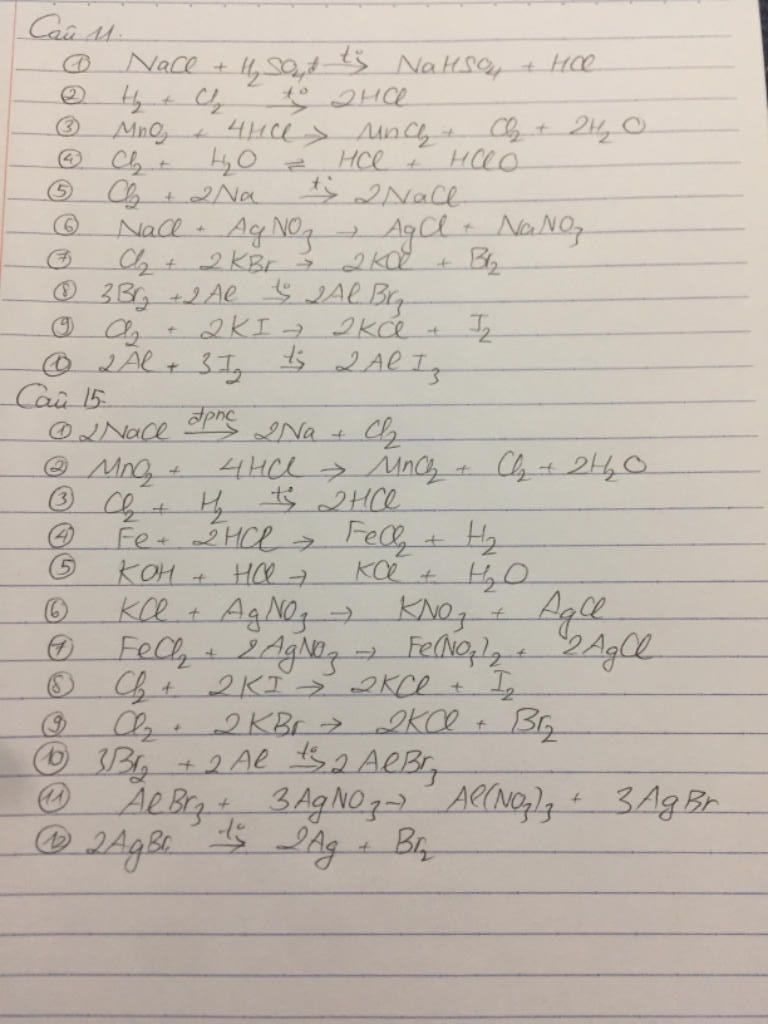 Câu 11.
① NaCl + H₂SO₄đ –t°→ NaHSO₄ + HCl
② H₂ + Cl₂ –t°→ 2HCl
③ MnO₂ + 4HCl → MnCl₂ + Cl₂ + 2H₂O
④ Cl₂ + H₂O ⇌ HCl + HClO
⑤ Cl₂ + 2Na –t°→ 2NaCl
⑥ NaCl + AgNO₃ → AgCl + NaNO₃
⑦ Cl₂ + 2KBr → 2KCl + Br₂
⑧ 3Br₂ + 2Al –t°→ 2AlBr₃
⑨ Cl₂ + 2KI → 2KCl + I₂
⑩ 2Al + 3I₂ –t°→ 2AlI₃
Câu 15.
① 2NaCl –đpnc→ 2Na + Cl₂
② MnO₂ + 4HCl → MnCl₂ + Cl₂ + 2H₂O
③ Cl₂ + H₂ –t°→ 2HCl
④ Fe + 2HCl → FeCl₂ + H₂
⑤ KOH + HCl → KCl + H₂O
⑥ KCl + AgNO₃ → KNO₃ + AgCl
⑦ FeCl₂ + 2AgNO₃ → Fe(NO₃)₂ + 2AgCl
⑧ Cl₂ + 2KI → 2KCl + I₂
⑨ Cl₂ + 2KBr → 2KCl + Br₂
⑩ 3Br₂ + 2Al –t°→ 2AlBr₃
⑪ AlBr₃ + 3AgNO₃ → Al(NO₃)₃ + 3AgBr
⑫ 2AgBr –t°→ 2Ag + Br₂